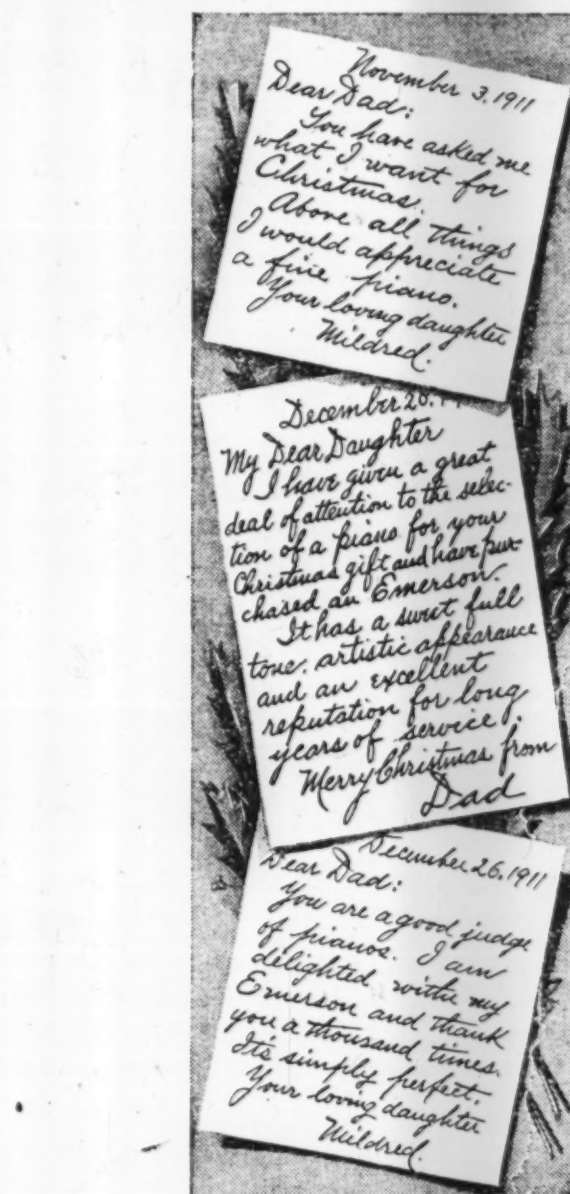 November 3, 1911
Dear Dad:
You have asked me
what I want for
Christmas.
Above all things
I would appreciate
a fine piano.
Your loving daughter
Mildred.
December 20,
My Dear Daughter
I have given a great
deal of attention to the selec-
tion of a piano for your
Christmas gift and have pur-
chased an Emerson.
It has a sweet full
tone, artistic appearance
and an excellent
reputation for long
years of service.
Merry Christmas from
Dad
December 26, 1911
Dear Dad:
You are a good judge
of pianos. I am
delighted with my
Emerson and thank
you a thousand times.
It's simply perfect.
Your loving daughter
Mildred.